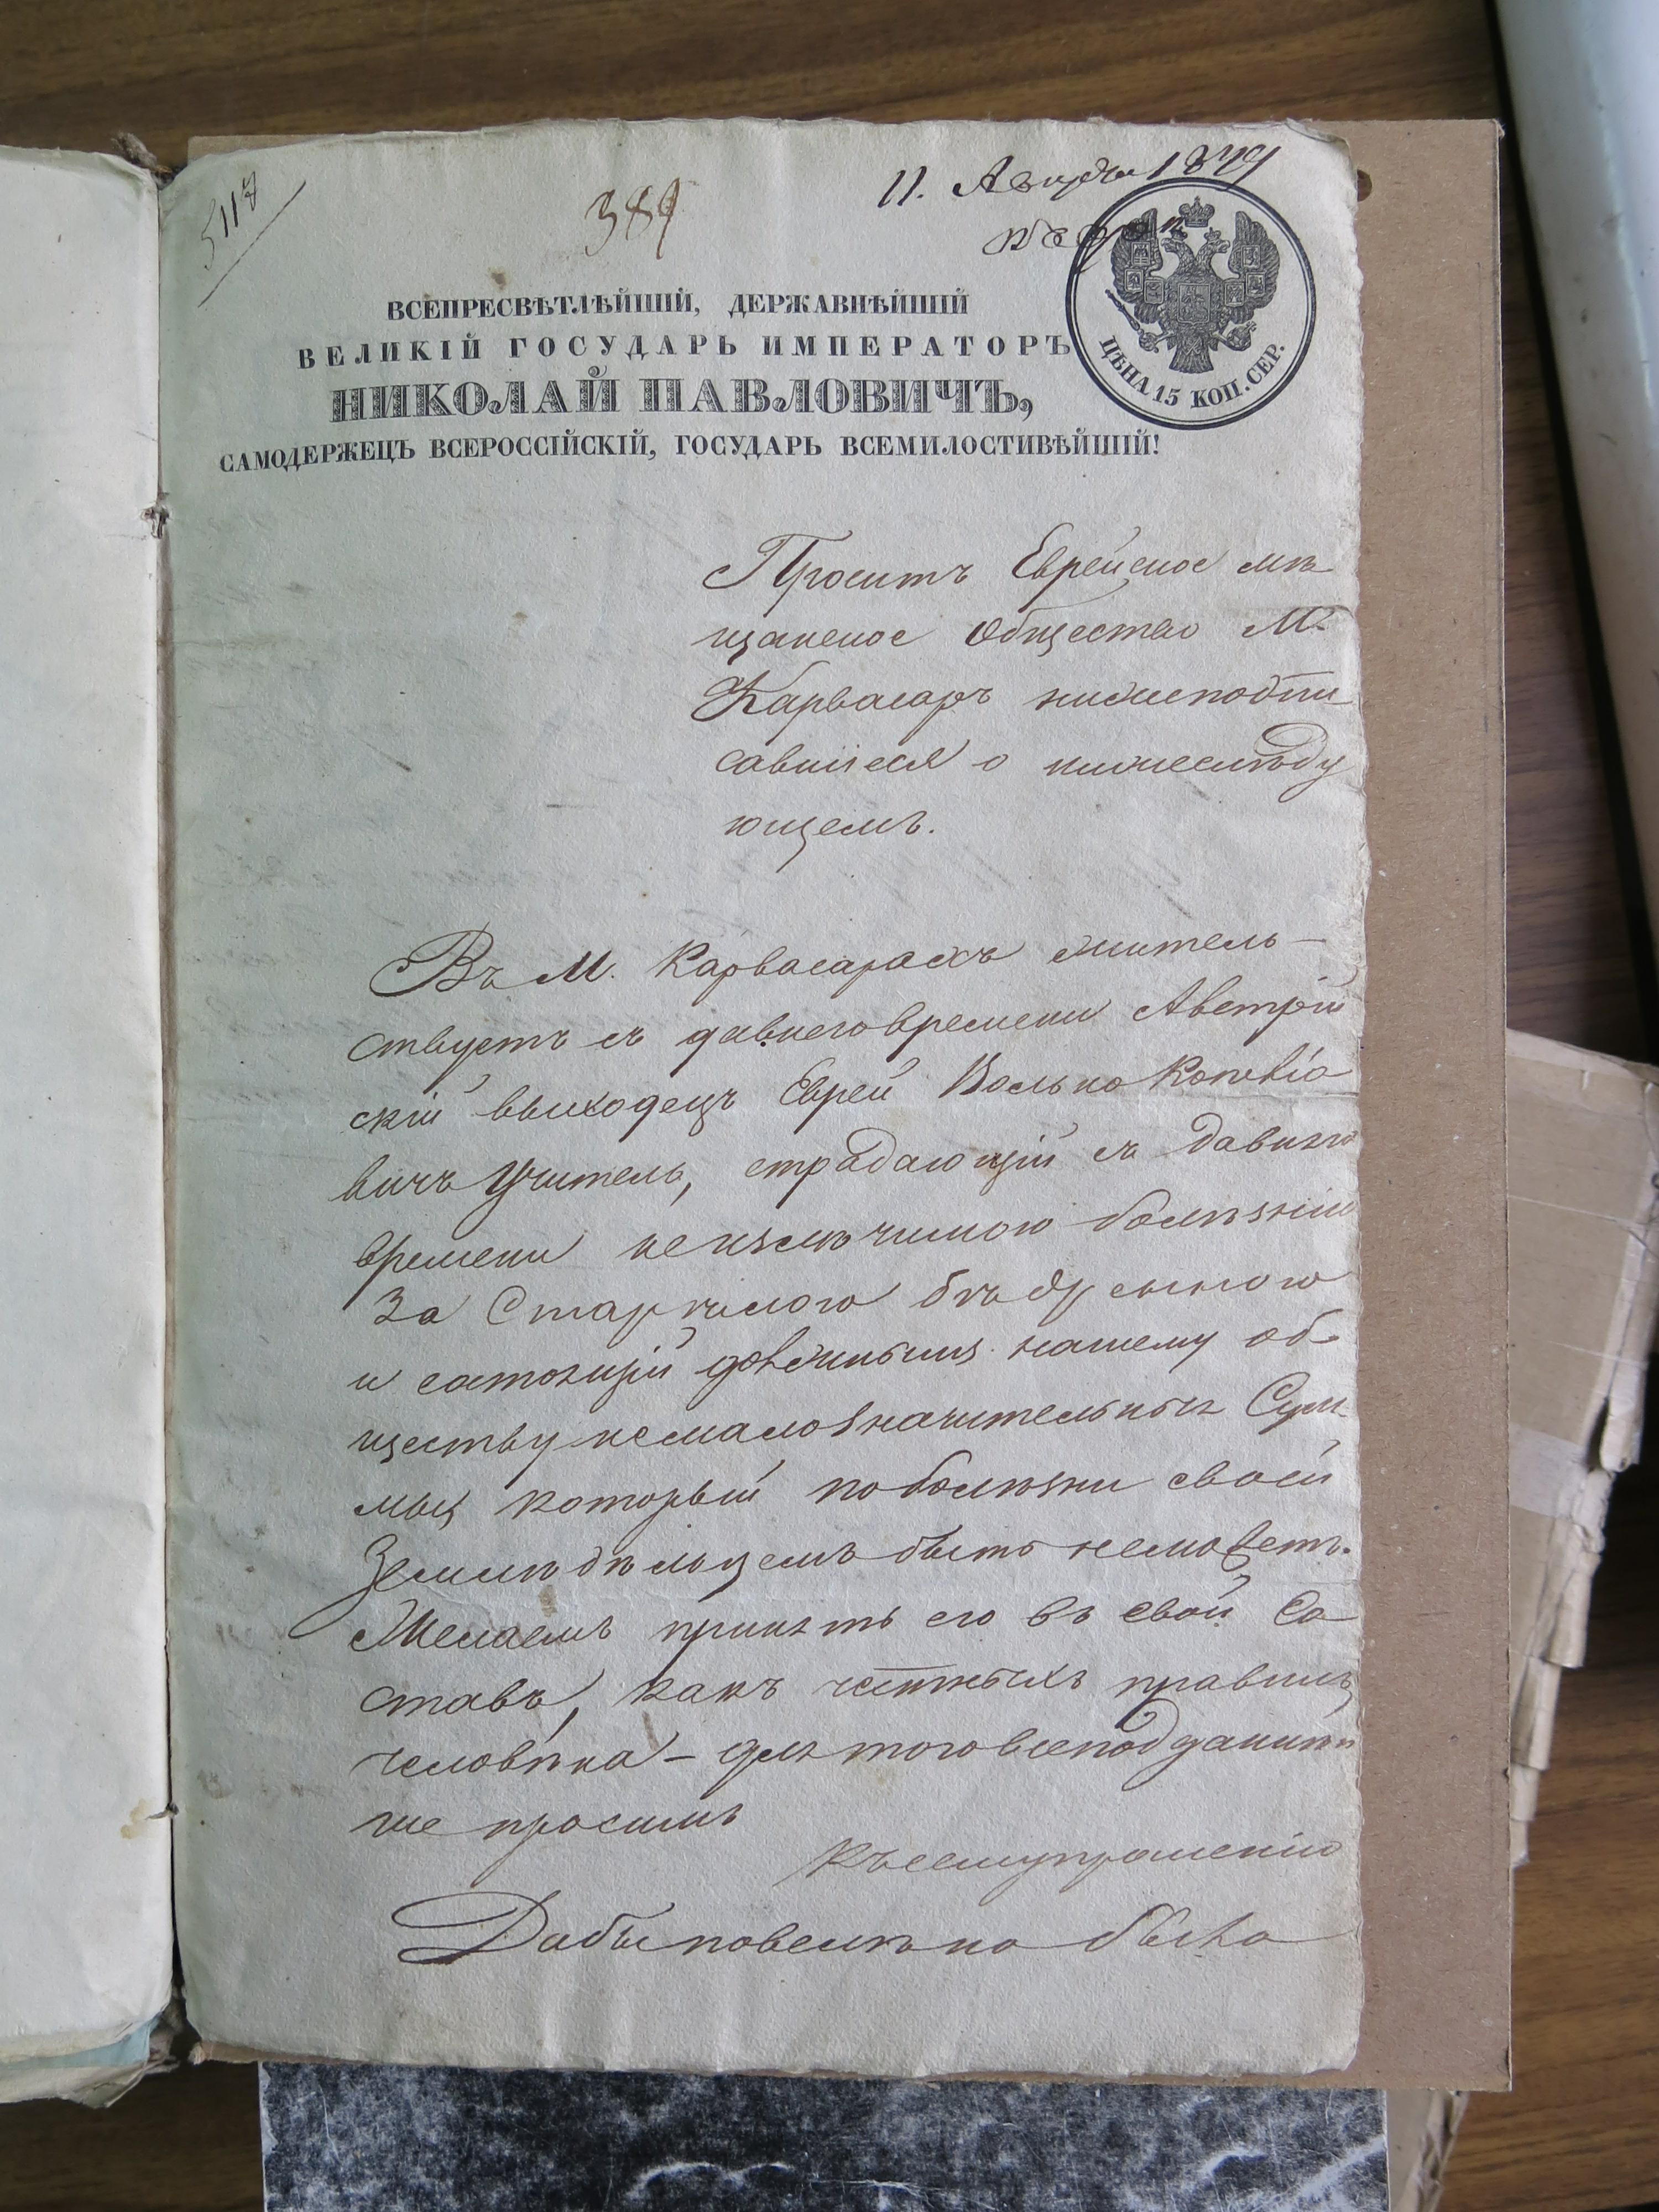 5118
389
11. Августа 1849
ВСЕПРЕСВѢТЛѢЙШІЙ, ДЕРЖАВНѢЙШІЙ
ВЕЛИКІЙ ГОСУДАРЬ ИМПЕРАТОРЪ
НИКОЛАЙ ПАВЛОВИЧЪ,
САМОДЕРЖЕЦЪ ВСЕРОССІЙСКІЙ, ГОСУДАРЬ ВСЕМИЛОСТИВѢЙШІЙ!
ЦѢНА 15 КОП. СЕР.
Проситъ Еврейское мѣ
щанское Общество М.
Карвасаръ нижеподпи
савшіеся о нижеслѣду
ющемъ.
Въ М. Карвасарахъ житель–
ствуетъ съ давнего времени Австрій
скій выходецъ Еврей Волько
вичъ Учитель, страдающій съ давняго
времени неизлѣчимою болѣзнію
За Старѣлою
и состоящій должнымъ нашему об
ществу немалозначительныя Сум
мы который по болѣзни своей
Земледѣльцемъ быть неможетъ.
Желаемъ принять его въ свой Со
ставъ, какъ честныхъ правилъ
человѣка – для того всеподданнѣй
ше просимъ
Къ сему прошенію
Дабы повелѣно было